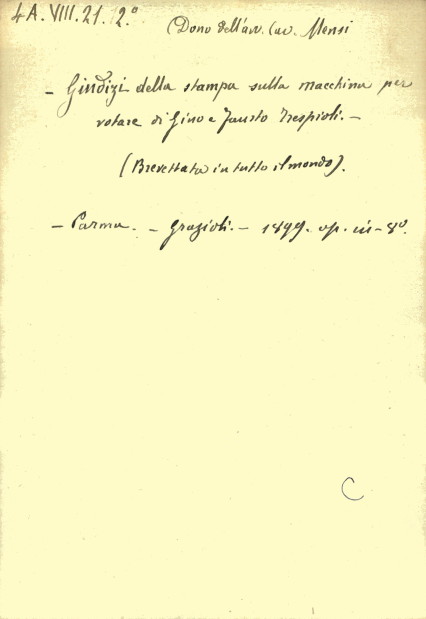 4A.VIII.21.2º
Dono dell'avv. Cav. Mensi
- Giudizi della stampa sulla macchina per
votare di Gino e Fausto Trespioli. -
(Brevettata in tutto il mondo).
- Parma. - Grazioli. - 1899. op. in-8º.
C